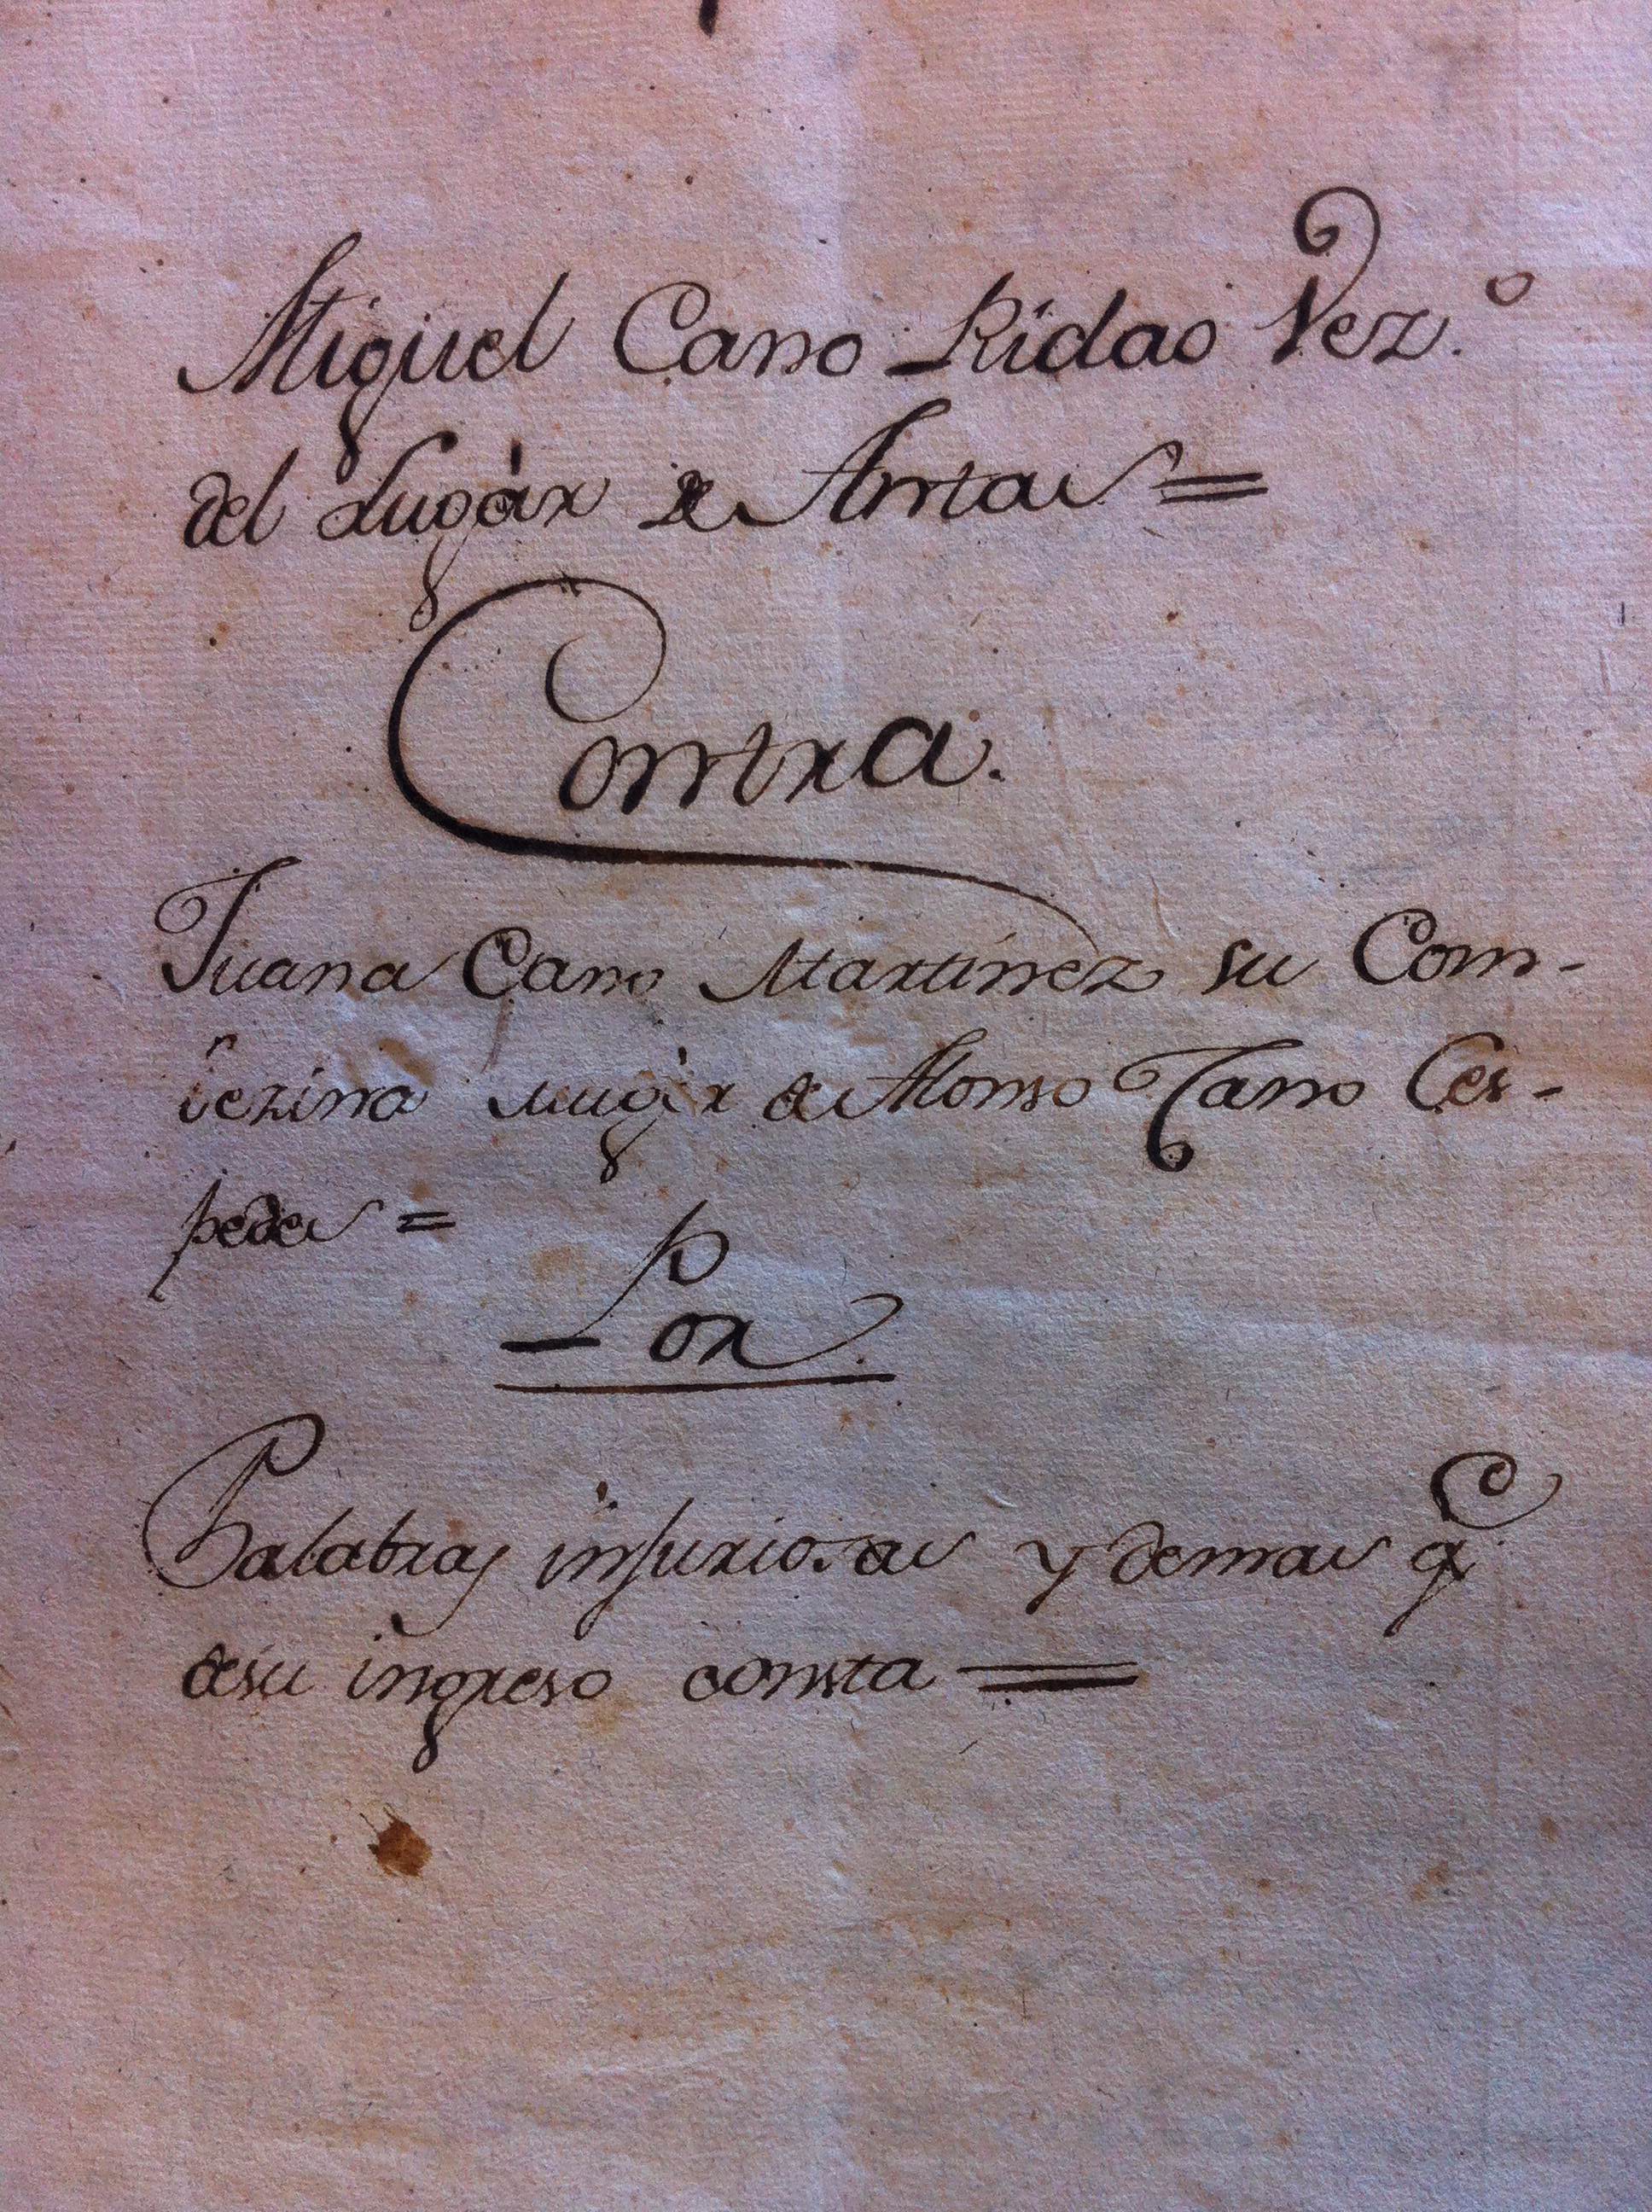 Miguel Cano Ridao Vez.º
del Lugàr de Antas =
Contra.
Juana Cano Martinez su Com-
bezina mugèr de Alonso Cano Ces-
pedes =
Por.
Palabras injuriosas y demas q.e
desu ingreso consta =